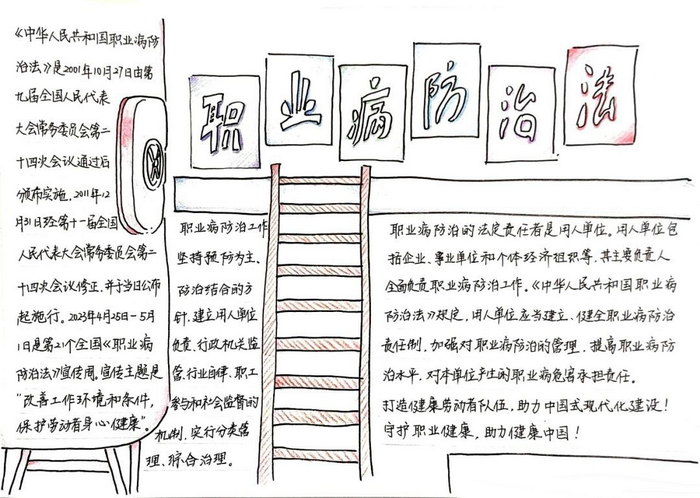 职业病防治法
《中华人民共和国职业病防
治法》是2001年10月27日由第
九届全国人民代表
大会常务委员会第二
十四次会议通过后
颁布实施。2011年12
月31日经第十一届全国
人民代表大会常务委员会第二
十四次会议修正,并于当日公布
起施行。2023年4月25日-5月
1日是第21个全国《职业病
防治法》宣传周。宣传主题是
“改善工作环境和条件,
保护劳动者身心健康”。
职业病防治工作
坚持预防为主、
防治结合的方
针,建立用人单位
负责、行政机关监
管、行业自律、职工
参与和社会监督的
机制,实行分类管
理、综合治理。
职业病防治的法定责任者是用人单位。用人单位包
括企业、事业单位和个体经济组织等,其主要负责人
全面负责职业病防治工作。《中华人民共和国职业病
防治法》规定,用人单位应当建立、健全职业病防治
责任制,加强对职业病防治的管理,提高职业病防
治水平,对本单位产生的职业病危害承担责任。
打造健康劳动者队伍,助力中国式现代化建设!
守护职业健康,助力健康中国!